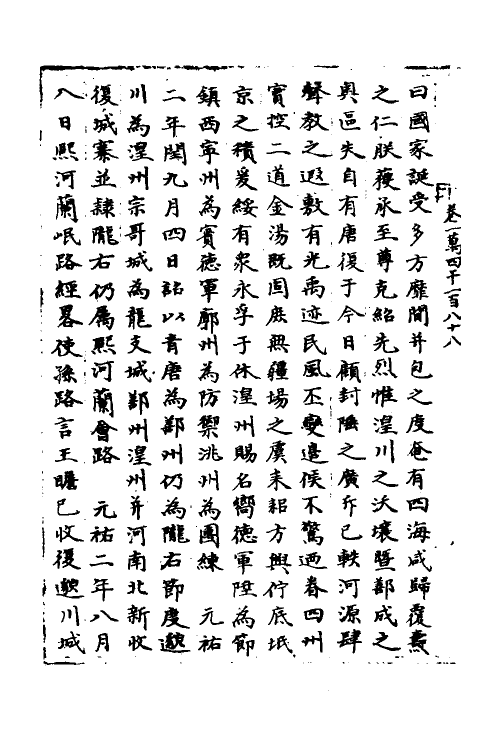 卷一萬四千一百八十八
曰國家誕受多方靡間并包之度奄有四海咸歸覆燾
之仁朕獲承至尊克紹先烈惟湟川之沃壤暨鄯成之
奧區失自有唐復于今日顧封陲之廣斥已軼河源肆
聲教之遐敷有光禹迹民風丕變邊候不驚迺眷四州
實控二道金湯既固庶無疆埸之虞耒耜方興佇底坻
京之積爰綏有衆永孚于休湟州賜名嚮德軍陞為節
鎮西寧州為賓德軍廓州為防禦洮州為團練　元祐
二年閏九月四日詔以青唐為鄯州仍為隴右節度邈
川為湟州宗哥城為龍支城鄯州湟州并河南北新收
復城寨並隸隴右仍屬熙河蘭會路　元祐二年八月
八日熙河蘭岷路經畧使孫路言王瞻已收復邈川城